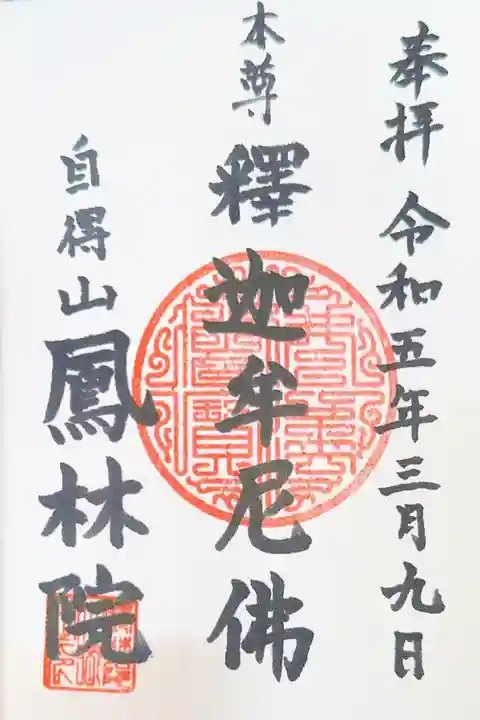 奉拝 令和五年三月九日
本尊 釋迦牟尼佛
自得山鳳林院